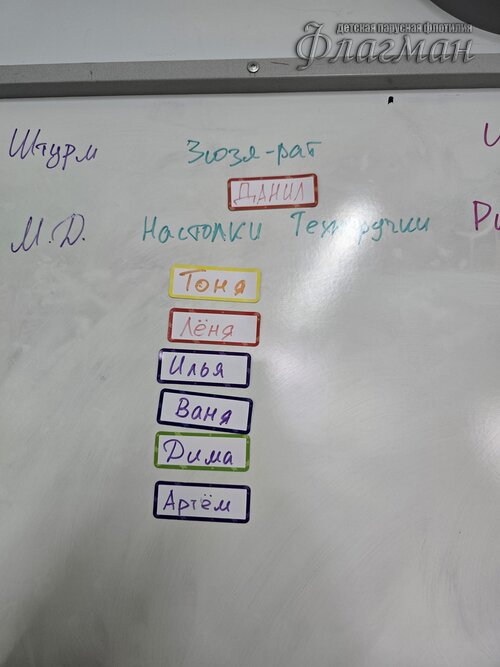 детская парусная флотилия
Флагман
Штурм Зюзя-рат
ДАНИЛ
М.Д. Настолки Техн ручки
Тоня
Лёня
Илья
Ваня
Дима
Артём